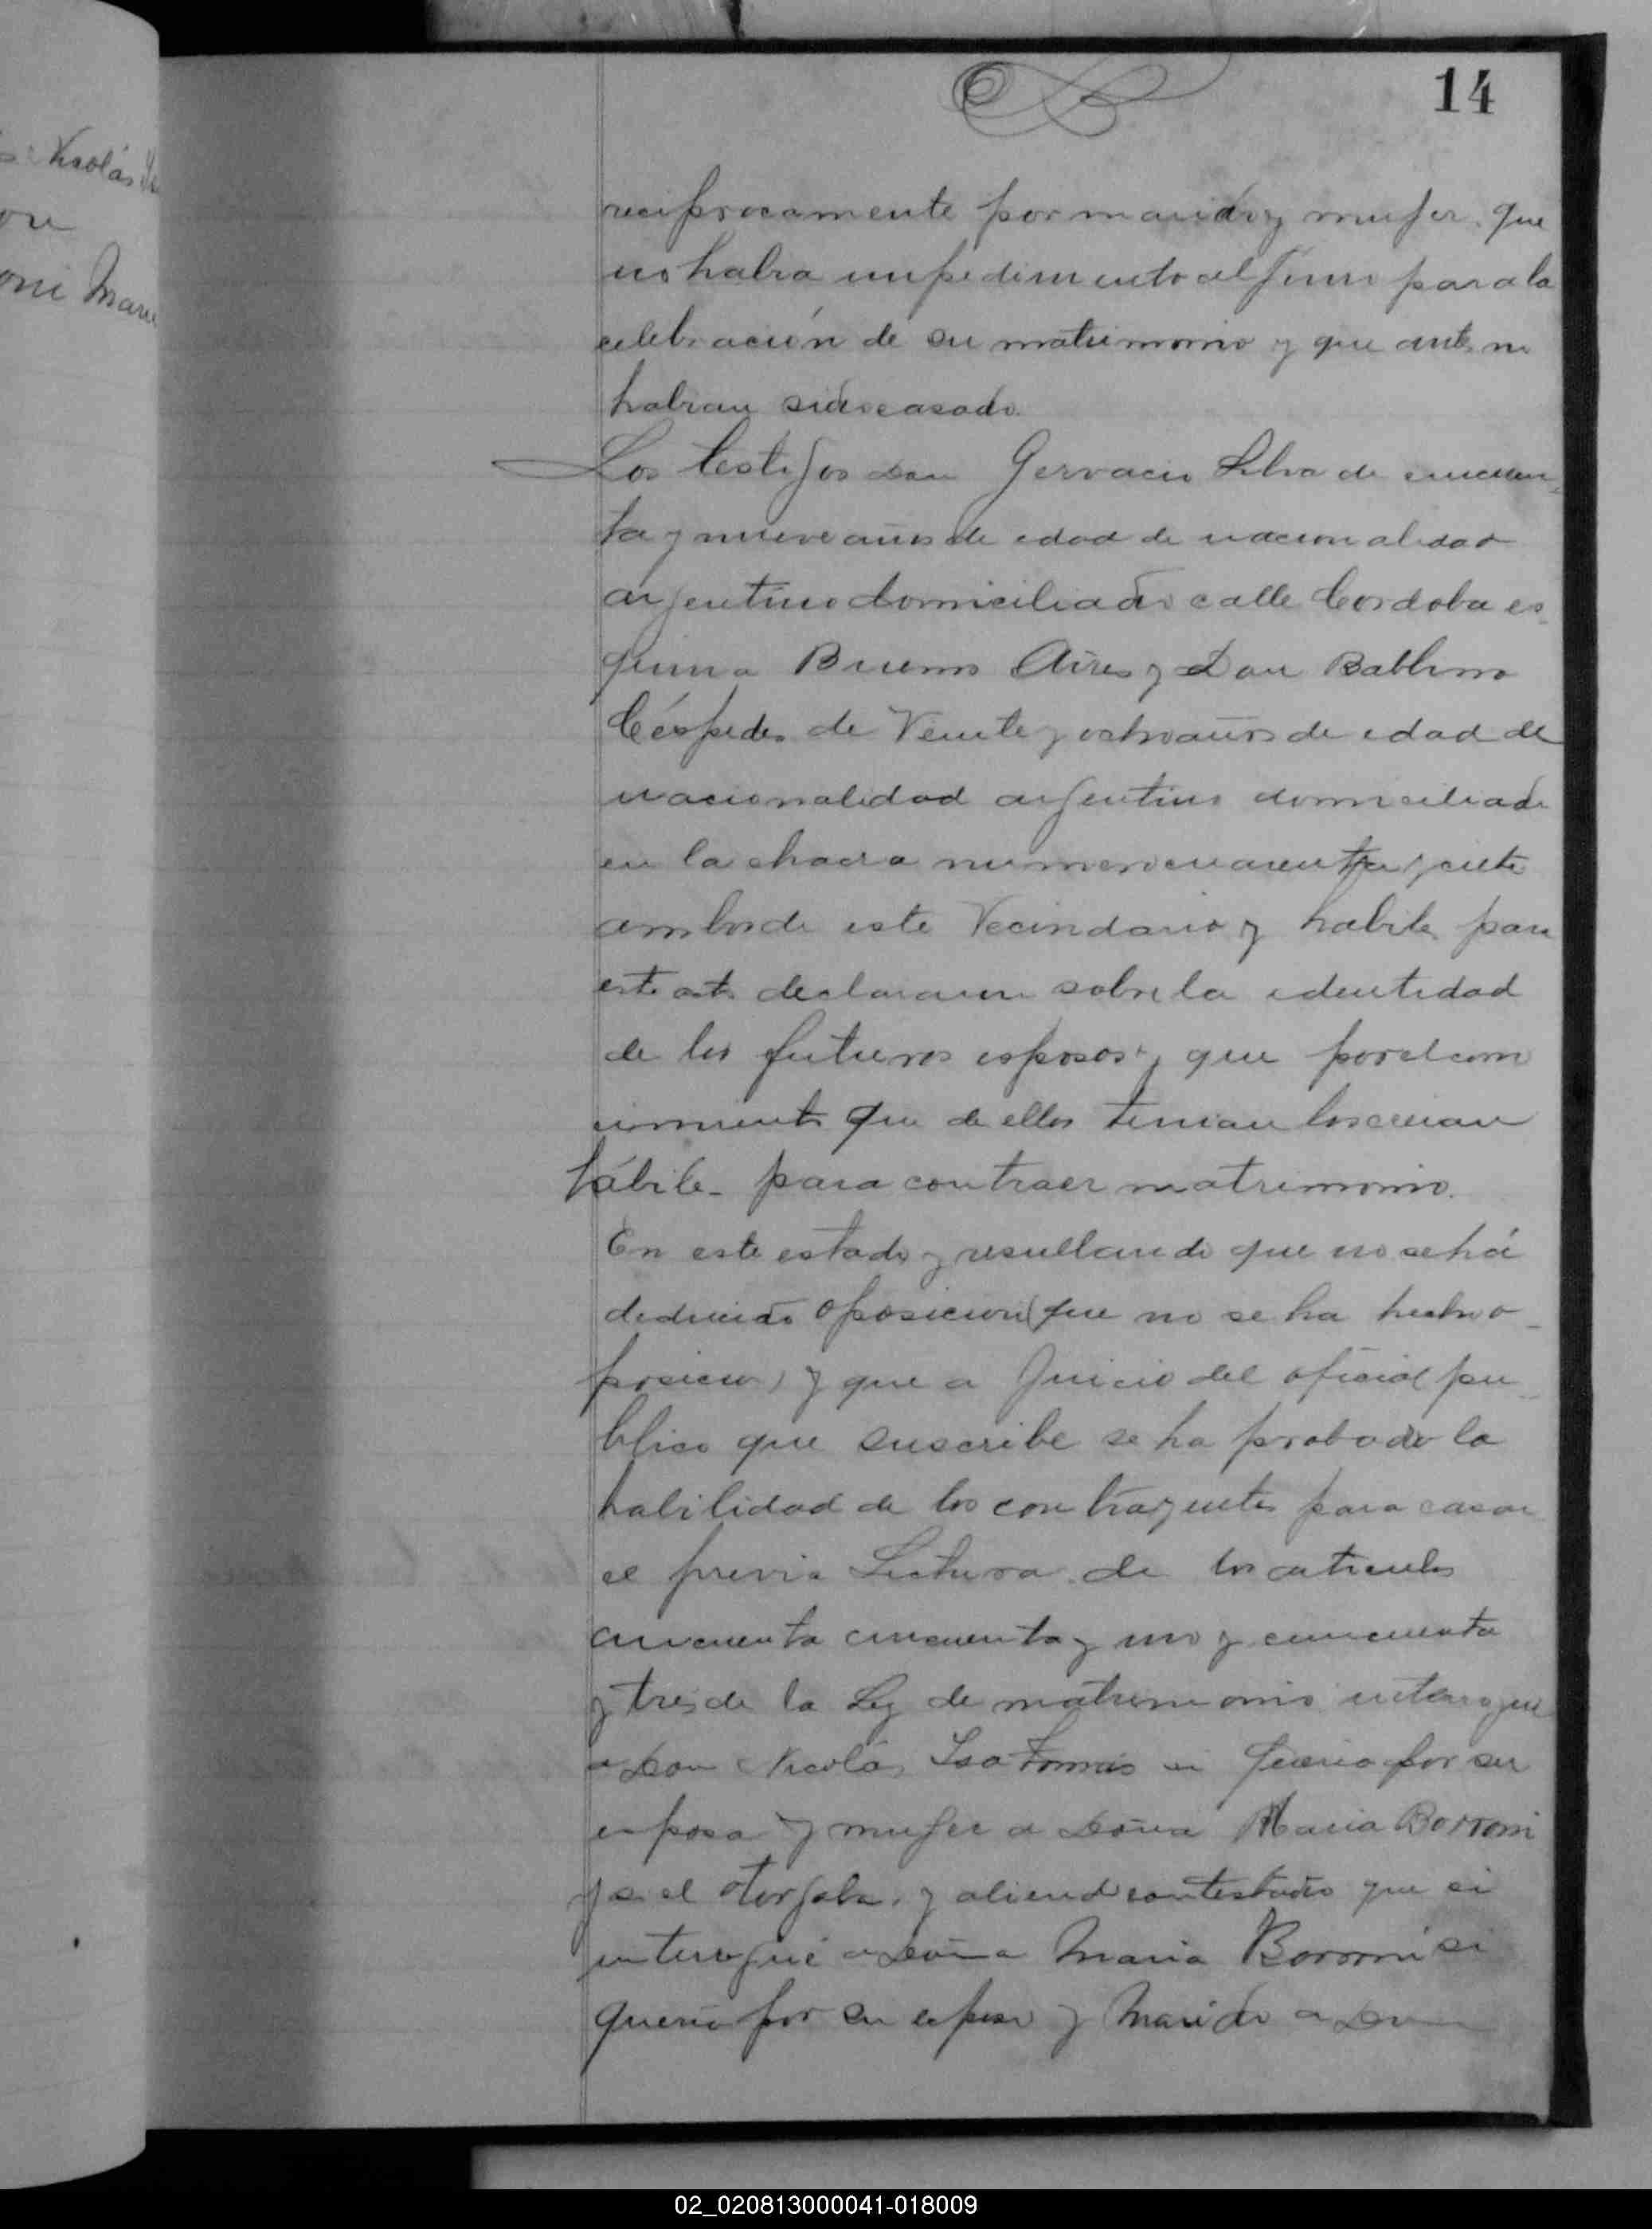 14
Nicolás
oni Maria
reciprocamente por marido y mujer, que
no habia impedimento alguno para la
celebración de su matrimonio y que antes no
habian sido casado.
Los testigos Don Gervacio Silva de cincuen-
ta y nueve años de edad de nacionalidad
argentino domiciliado calle Cordoba es-
quina Buenos Aires y Don
Céspedes de Veinte y ocho años de edad de
nacionalidad argentino domiciliado
en la chacra numero cuarenta y siete
ambos de este Vecindario y habiles para
este acto declararon sobre la identidad
de los futuros esposos y que por el cono
cimiento que de ellos tenian los creian
hábiles para contraer matrimonio.
En este estado y resultando que no se há
deducido oposicion (que no se ha hecho o-
posicion) y que a Juicio del oficial pu-
blico que suscribe se ha probado la
habilidad de los contrayentes para casar
se previa Lectura de los articulos
cincuenta cincuenta y uno y cincuenta
y tres de la Ley de matrimonio interrogué
a Don Nicolás si queria por su
esposa y mujer a Doña Maria Borroni
y si el otorgaba, y abiendo contestado que si
interrogué a Doña Maria Borroni si
queria por su esposo y Marido a Don
02_020813000041-018009